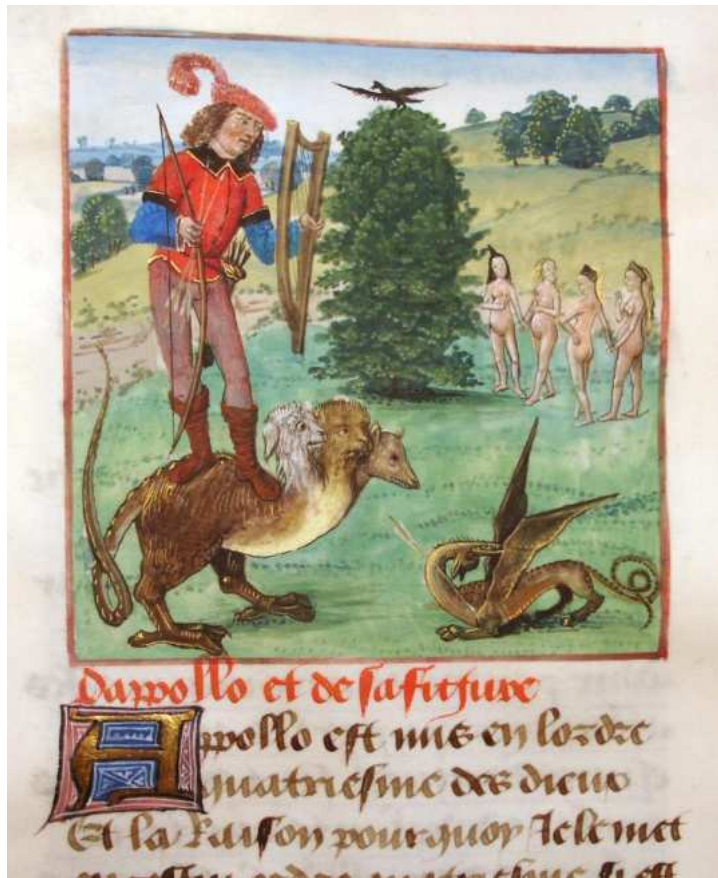 Dappollo et de sa figure
Appollo est mis en lordre
quatriesme des dieux
Et la Raison pourquoy Je le met